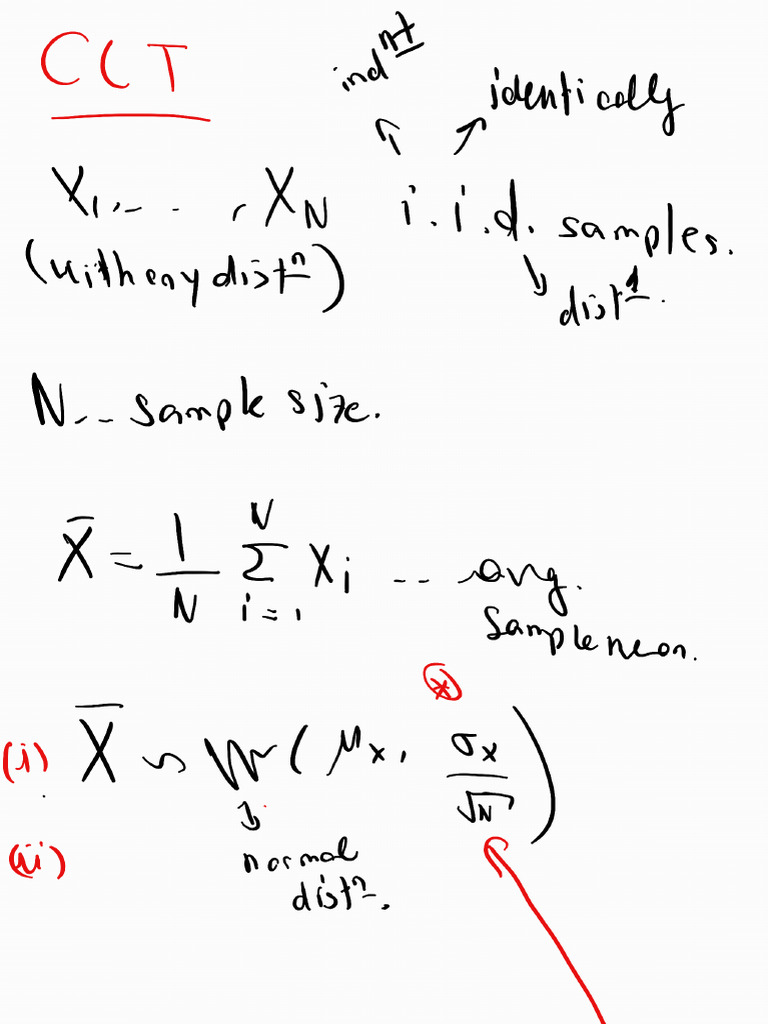 CLT
ind nt
identically
X₁, -- - , X_N i.i.d. samples.
(with any dist n)
dist d.
N -- sample size.
X̄ = 1/N Σ_{i=1}^{N} X_i -- avg.
Sample mean.
(i) X̄ ~ N ( μ_X, σ_X/√N ) *
(ii)
normal
dist n.